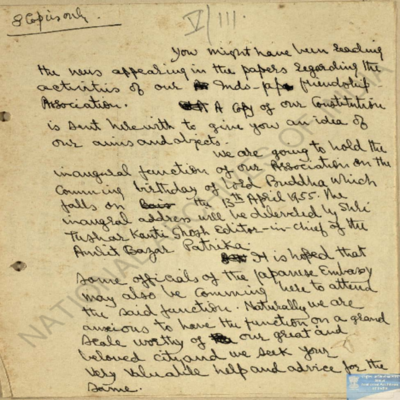 8 Copies only.
V/III.
You might have been reading
the news appearing in the papers regarding the
activities of our Indo-  friendship
Association. A Copy of our Constitution
is sent herewith to give you an idea of
our aims and objects.
we are going to hold the
inaugural function of our Association on the
Comming birthday of Lord Buddha which
falls on the  April 1955. The
inaugral address will be delivered by Shri
Tushar Kanti Ghosh Editor-in-chief of the
Amrit Bazar Patrika.
It is hoped that
some officials of the Japanese Embassy
may also be Comming here to attend
the said function. Naturally we are
anxious to have the function on a grand
scale worthy of our great and
beloved city and we seek your
very valuable help and advice for the
same.